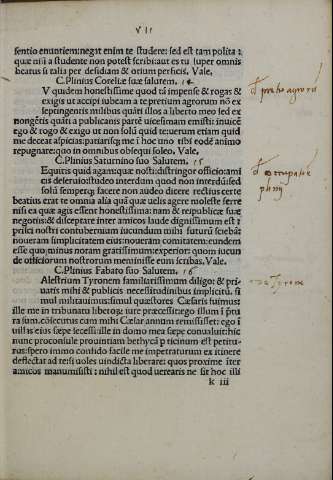 VII
sentio enuntiem: negat enim te studere: sed est tam polita:
quæ nisi a studente non potest scribi: aut es tu super omnis
beatus si talia per desidiam & otium perficis. Vale.
C. Plinius Coreliæ suæ salutem. 14
V quidem honestissime quod tā impense & rogas &
exigis ut accipi iubeam a te pretium agrorum nō ex
septingentis milibus quāti illos a liberto meo sed ex
nongētis quāti a publicanis parte uicesimam emisti: inuicē
ego & rogo & exigo ut non solū quid te: uerum etiam quid
me deceat aspicias: patiarisq; me ī hoc uno tibi eodē animo
repugnare: quo in omnibus obsequi soleo. Vale.
C. Plinius Saturnino suo Salutem. 15
Equiris quid agam: quæ nosti: distringor officio: am
icis deseruio: studeo interdum quod non interdū: sed
solū semperq; facere non audeo dicere rectius certe
beatius erat te omnia alia quā quæ uelis agere moleste ferre
nisi ea quæ agis essent honestissima: nam & reipublicæ suæ
negotiis: & disceptare inter amicos laude dignissimum est
prisci nostri contubernium iucundum mihi futurū sciebā:
noueram simplicitatem eius: noueram comitatem: eundem
esse quo minus noram gratissimum: experior: quom iucun
de officiorum nostrorum meminisse eum scribas. Vale.
C. Plinius Fabato suo Salutem. 16
Alestrium Tyronem familiarissimum diligo: & pri
uatis mihi & publicis necessitudinibus implicitū. si
mul militauimus: simul quæstores Cæsaris fuimus
ille me in tribunatu liberorum iure præcessit: ego illum ī prætu
ra sum cōsecutus cum mihi Cæsar annum remisisset: ego ī
uillas eius sæpe secessi: ille in domo mea sæpe conualuit: hic
nunc proconsule prouintiam bethycā p ticinum est petitu
rus: spero immo confido facile me impetraturum ex itinere
deflectat ad te: si uoles uindicta liberare: quos proxime īter
amicos manumisisti: nihil est quod uerearis ne sit hoc illi
k iii